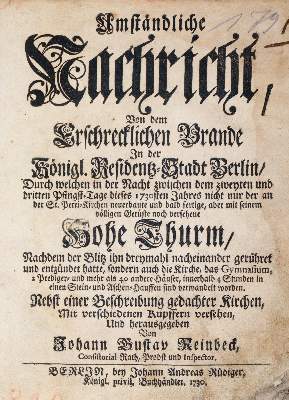 Umständliche
Nachricht,
Von dem
Erschrecklichen Brande
In der
Königl. Residentz-Stadt Berlin/
Durch welchen in der Nacht zwischen dem zweyten und
dritten Pfingst-Tage dieses 1730sten Jahres nicht nur der an
der St. Petri-Kirchen neuerbaute und bald fertige, aber mit seinem
völligen Gerüste noch versehene
Hohe Thurm/
Nachdem der Blitz ihn dreymahl nacheinander gerühret
und entzündet hatte, sondern auch die Kirche, das Gymnasium,
2 Prediger- und mehr als 40 andere Häuser, innerhalb 4 Stunden in
einen Stein- und Aschen-Hauffen sind verwandelt worden.
Nebst einer Beschreibung gedachter Kirchen,
Mit verschiedenen Kupffern versehen,
Und herausgegeben
Von
Johann Gustav Reinbeck,
Consistorial Rath, Probst und Inspector.
BERLIN, bey Johann Andreas Rüdiger,
Königl. privil. Buchhändler. 1730.